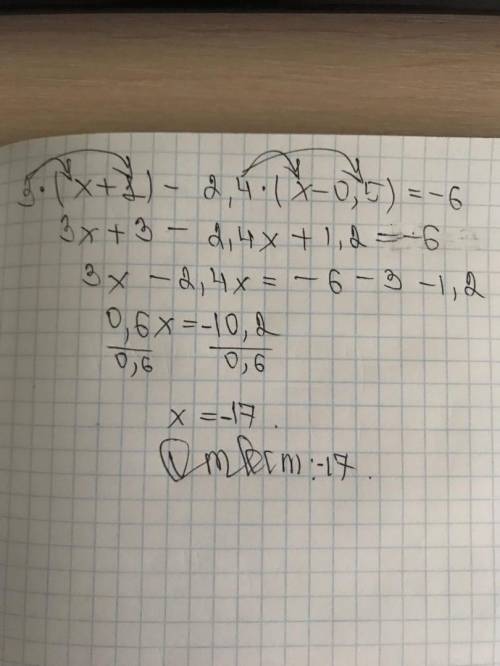 3·(x+1) - 2,4·(x-0,5)=-6
3x+3- 2,4x+1,2=-6
3x -2,4x= -6-3-1,2
0,6x=-10,2
0,6 0,6
x=-17.
:-17.